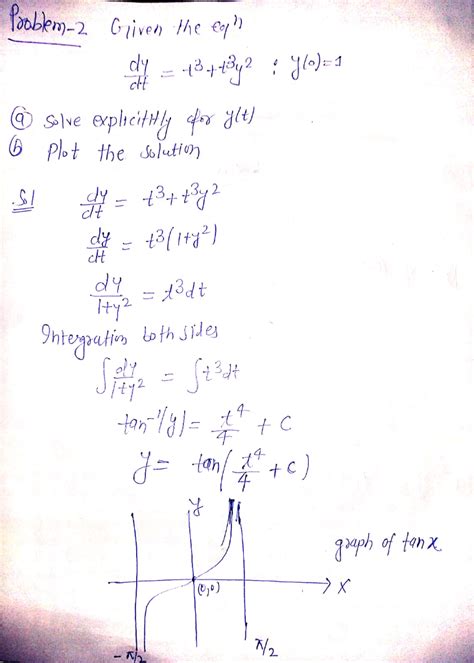 Problem-2 Given the eqⁿ
dy/dt = t³+t³y² ; y(0)=1
(a) solve explicitly for y(t)
(b) Plot the solution
Sol dy/dt = t³+t³y²
dy/dt = t³(1+y²)
dy/1+y² = t³dt
Intergration both sides
∫ dy/1+y² = ∫t³dt
tan⁻¹(y) = t⁴/4 + C
y = tan(t⁴/4 + c)
y
graph of tanx
(0,0)
X
-π/2
π/2